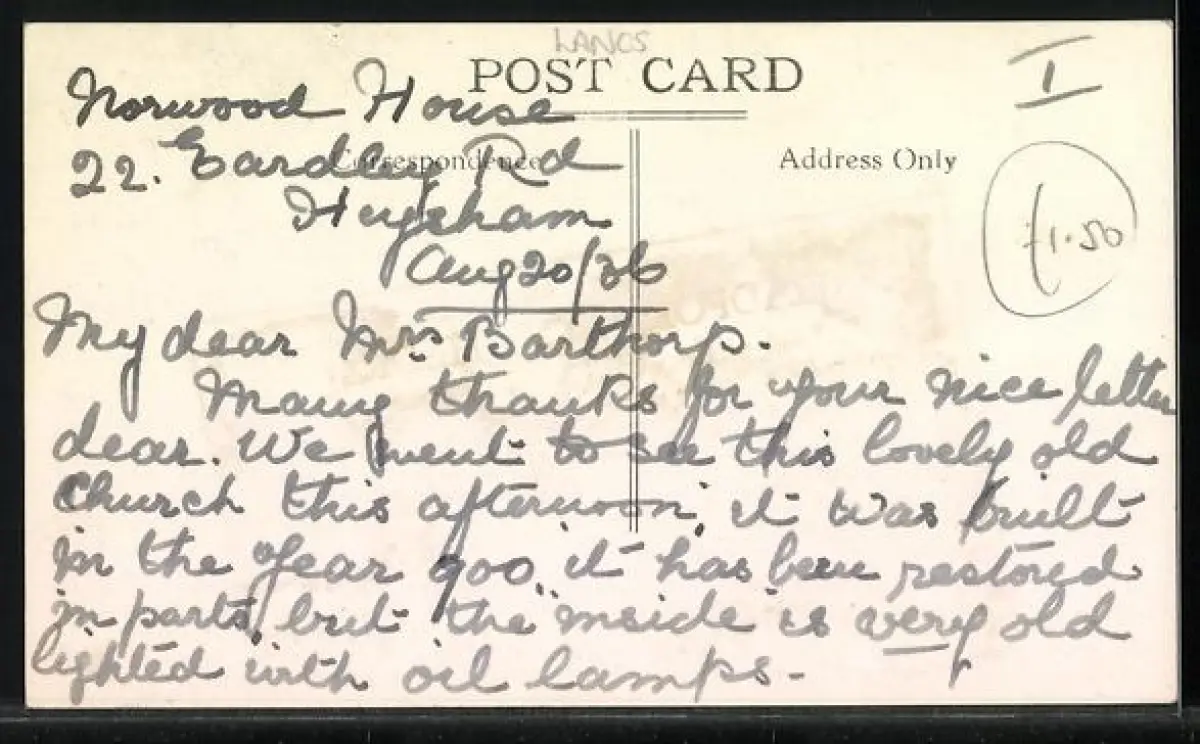 LANCS
POST CARD
I
Norwood House
Correspondence
Address Only
22. Eardley Rd
Heysham
£1.50
Aug 20/36
My dear Mrs Barthorp.
Many thanks for your nice letter
dear. We went to see this lovely old
Church this afternoon, it was built
in the Year 900, it has been restored
in parts, but the inside is very old
lighted with oil lamps.